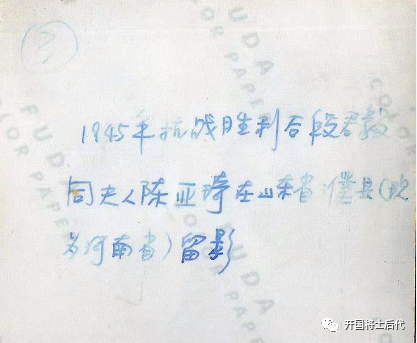 1945年抗战胜利后段君毅
同夫人陈亚琦在山东省濮县(现
为河南省)留影
FUDA
COLOR PAPER
开国将士后代